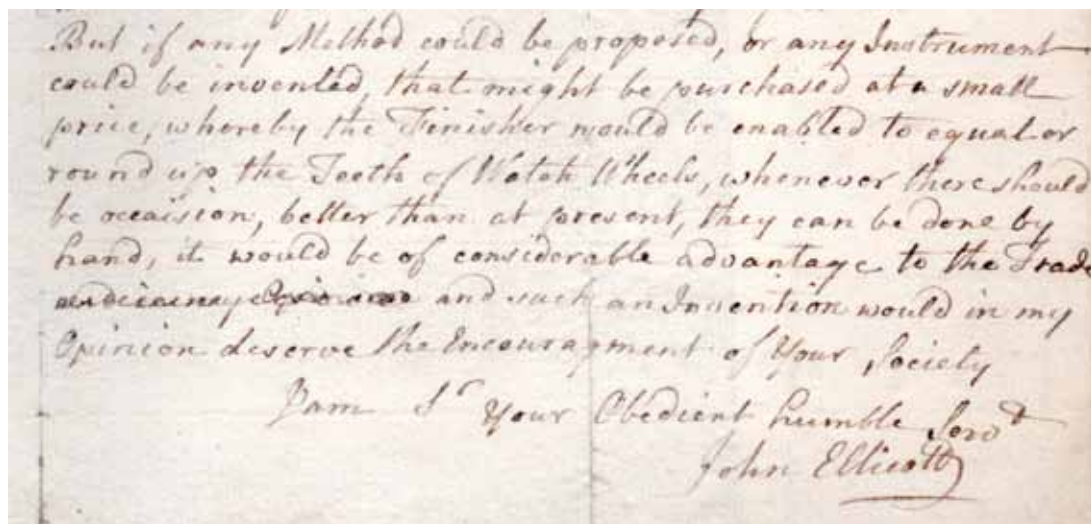 But if any Method could be proposed, or any Instrument
could be invented, that might be purchased at a small
price, whereby the Finisher would be enabled to equal or
round up the Teeth of Watch Wheels, whenever there should
be occaision, better than at present, they can be done by
hand, it would be of considerable advantage to the Trade
and such an Invention would in my
Opinion deserve the Encouragment of Your Society
I am Sr Your Obedient humble Servt
John Ellicott